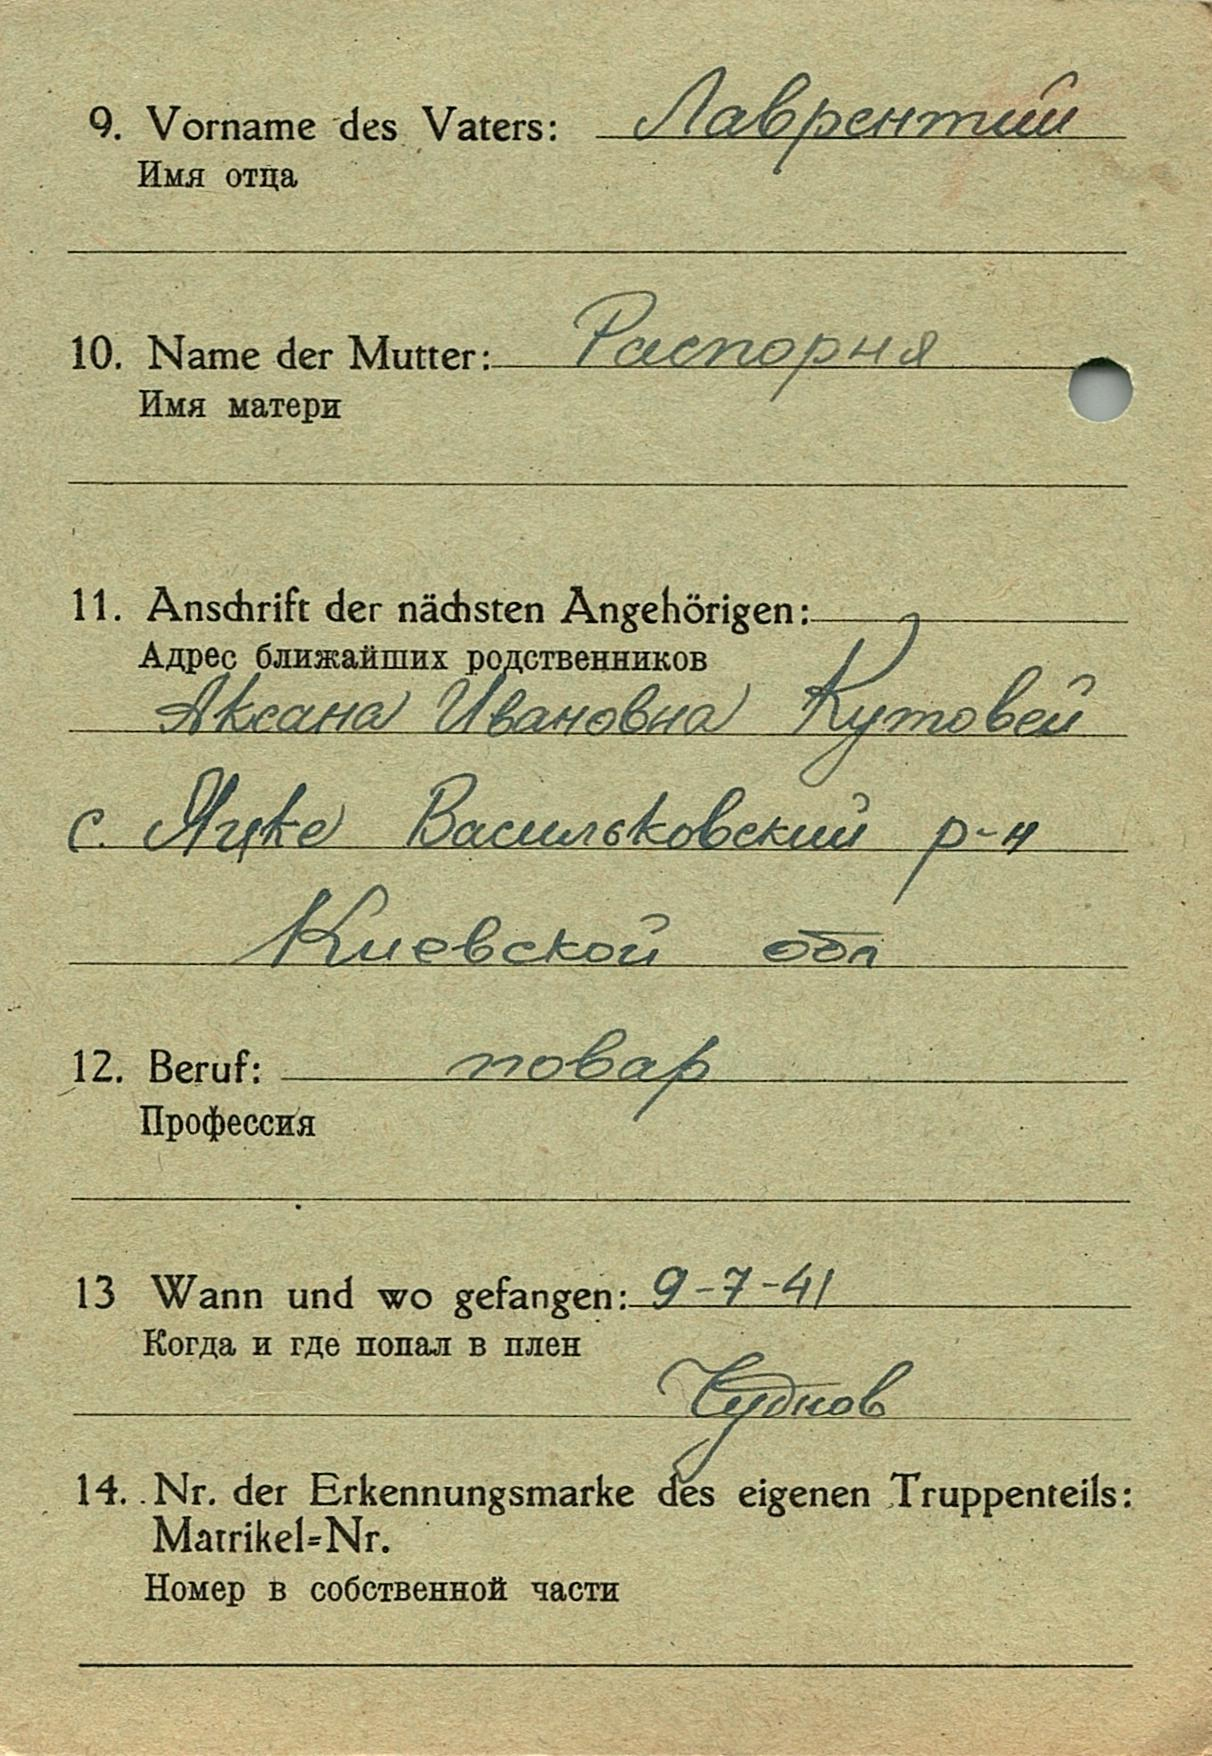 9. Vorname des Vaters: Лаврентий
Имя отца
10. Name der Mutter: Распорня
Имя матери
11. Anschrift der nächsten Angehörigen:
Адрес ближайших родственников
Аксана Ивановна Кутовей
с. Яцке Васильковский р-н
Киевской обл
12. Beruf: повар
Профессия
13 Wann und wo gefangen: 9-7-41
Когда и где попал в плен
Чуднов
14. Nr. der Erkennungsmarke des eigenen Truppenteils:
Matrikel=Nr.
Номер в собственной части